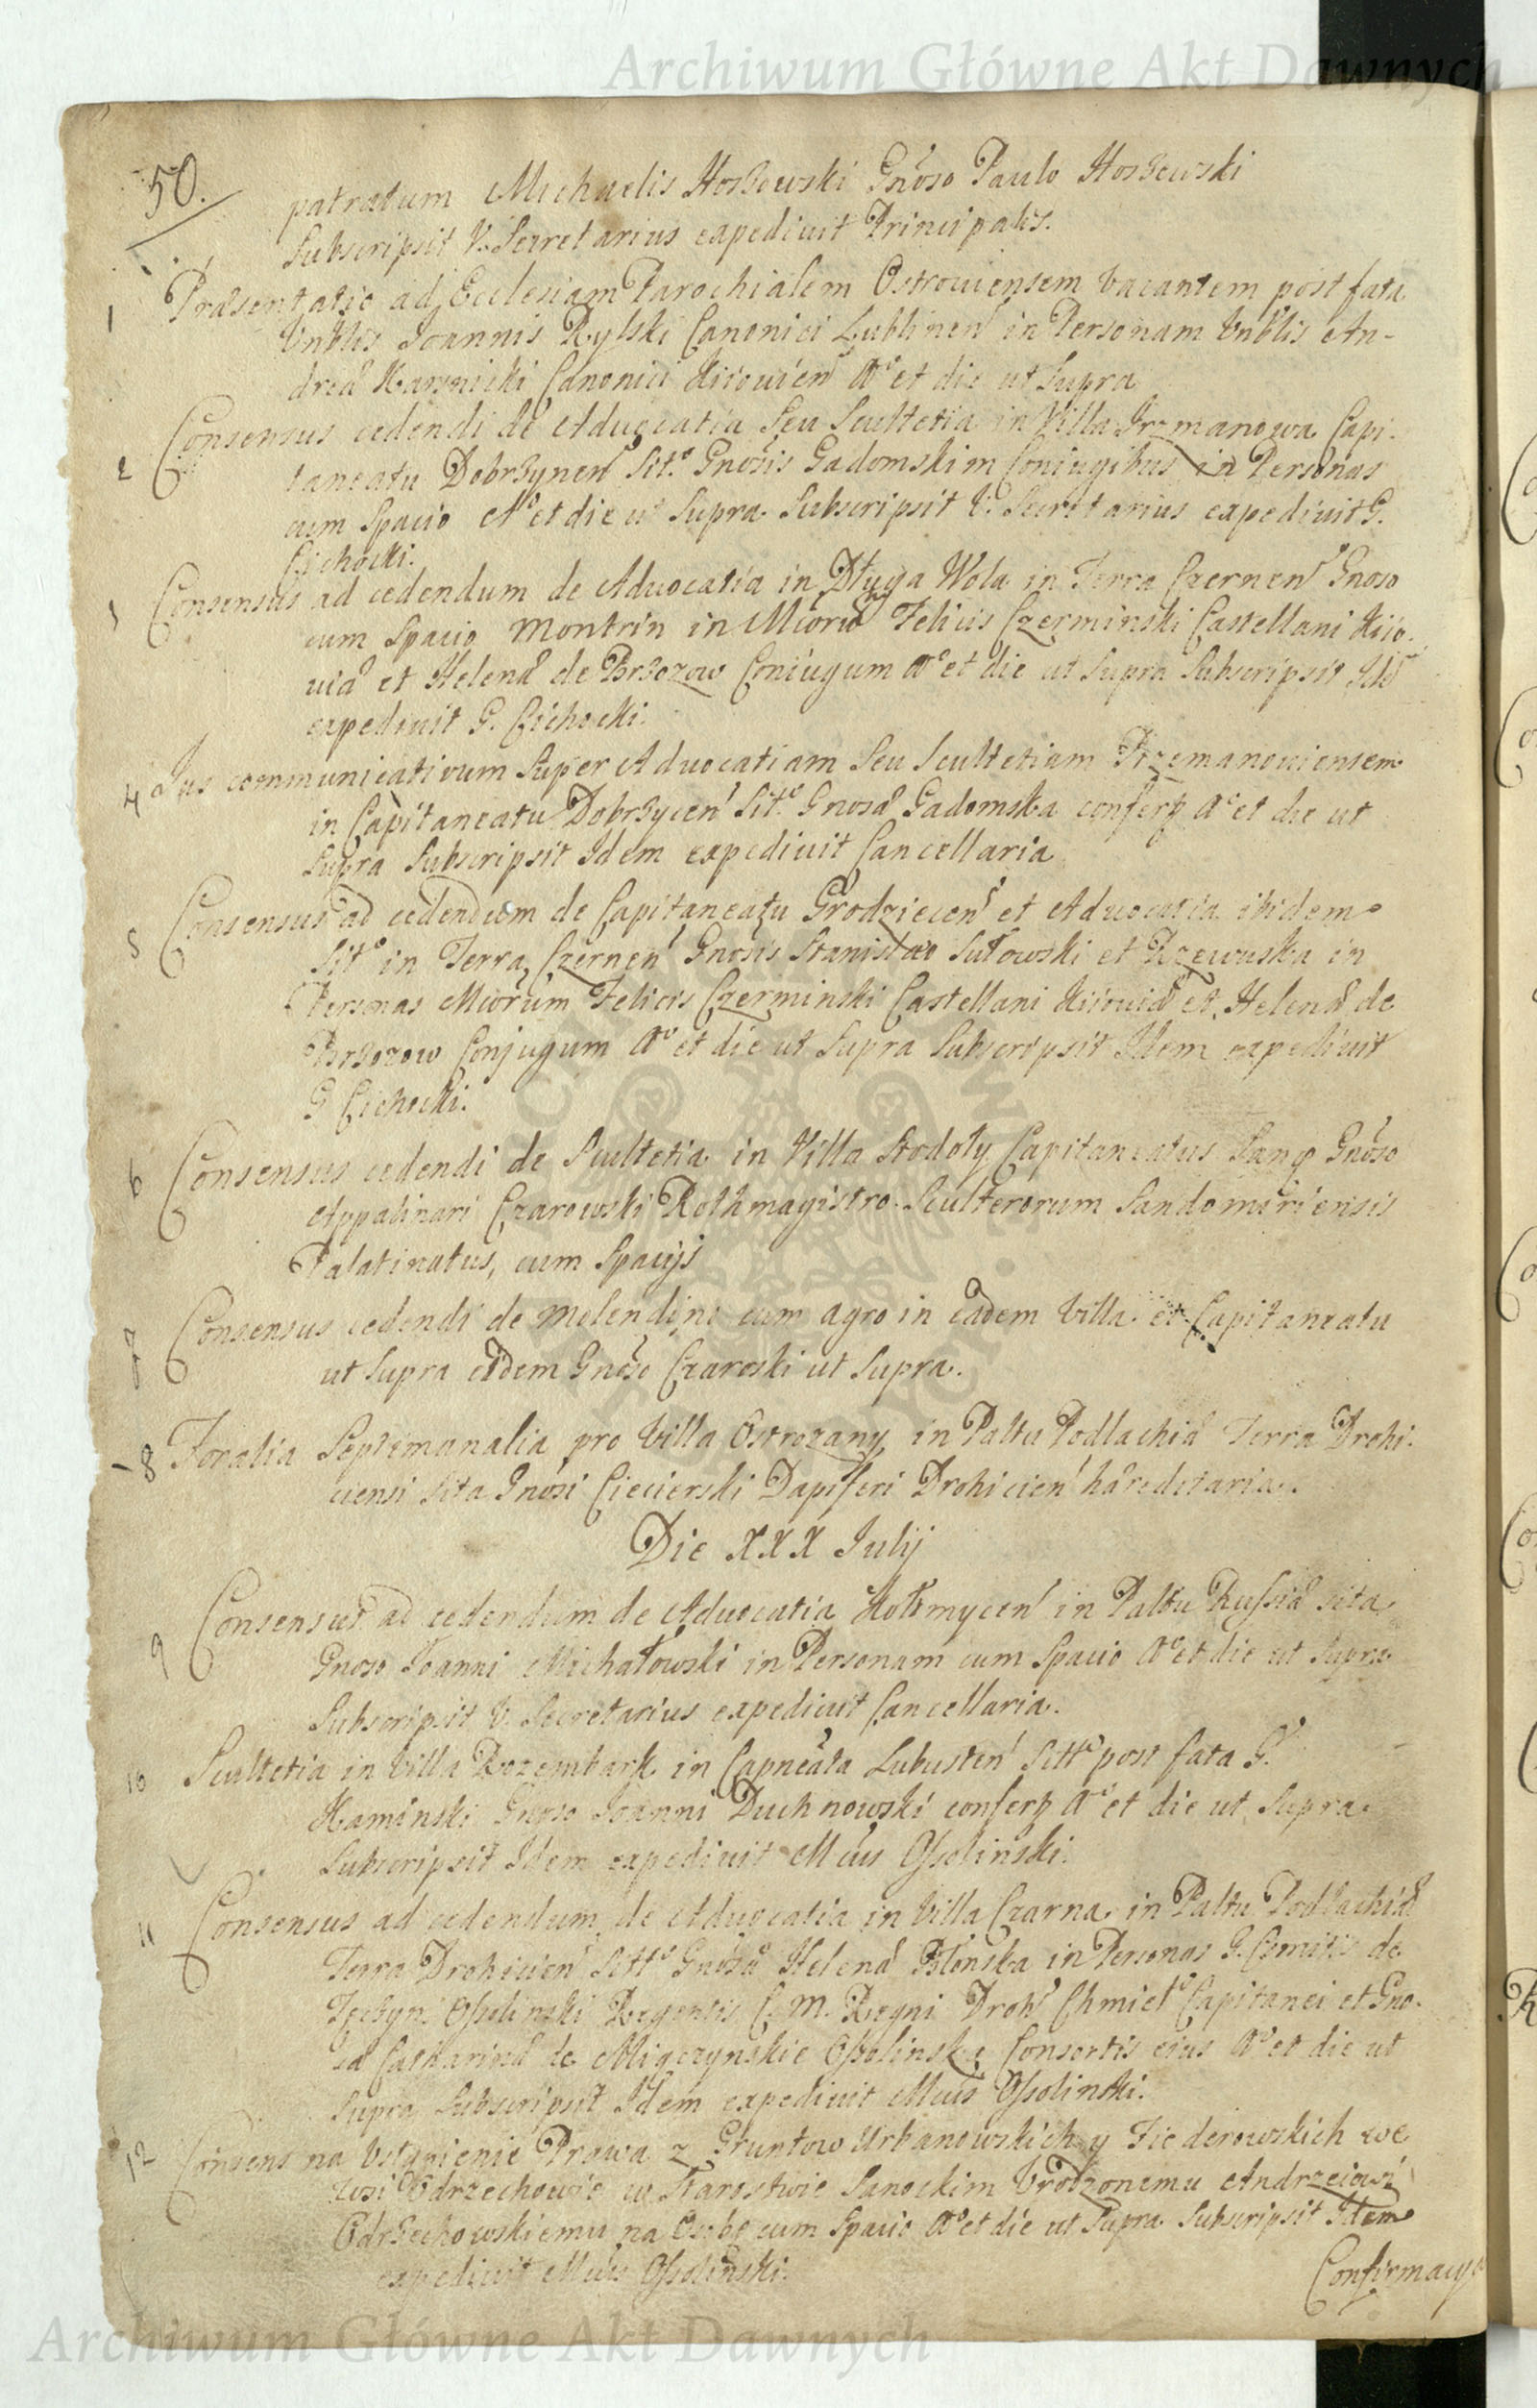 Archiwum Główne Akt Dawnych
50.
patratum Michaelis Hoszowski Gnoso Paulo Hoszowski
Subscripsit V. Secretarius expedivit Principalis.
1 Præsentatio ad Ecclesiam Parochialem Ostroviensem vacantem post fata
Vnblis Joannis Rylski Canonici Lublinen in Personam Vnblis An-
dreæ Kawnicki Canonici Kiiovien Aº et die ut Supra
2 Consensus cedendi de Advocatia Seu Scultetia in Villa Capi-
taneatu Dobrzynen Sitº Gnosis Gadomskim Coniugibus in Personas
cum Spacio Aº et die ut Supra Subscripsit V. Secretarius expedivit G.
Cichocki.
3 Consensus ad cedendum de Advocatia in Długa Wola in Terra Czernen Gnoso
cum Spacio Montrin in Felicis Czerminski Castellani Kiio-
viæ et Helenæ de Brzozow Coniugum Aº et die ut Supra Subscripsit Id
expedivit G. Cichocki.
4 Jus communicativum Super Advocatiam Seu Scultetiam Przemanoviensem
in Capitaneatu Dobrzycen Sitº Gnosæ Gadomska confert Aº et die ut
Supra Subscripsit Idem expedivit Cancellaria
5 Consensus ad cedendum de Capitaneatu Grodziecen et Advocatia ibidem
Sitº in Terra Czernen Gnosis Stanisław Sułowski et Rzewuska in
Personas Miorum Felicis Czerminski Castellani Kiioviæ et Helenæ de
Brzozow Conjugum Aº et die ut Supra Subscripsit Idem expedivit
G Cichocki.
6 Consensus cedendi de Scultetia in Villa Stodoły Capitaneatus Gnoso
Appalinari Czarowski Rothmagistro Scultetorum Sandomiriensis
Palatinatus, cum Spacijs
7 Consensus cedendi de molendino cum agro in eadem Villa et Capitaneatu
ut Supra eidem Gnoso Czaroski ut Supra.
8 Foralia Septimanalia pro Villa Ostrozany in Paltu Podlachiæ Terra Drohi-
ciensi Sita Gnosi Ciecierski Dapiferi Drohicien hæreditaria.
Die XXX Julij
9 Consensus ad cedendum de Advocatia Kołomycen in Paltu Russiæ sita
Gnoso Joanni Michałowski in Personam cum Spacio Aº et die ut Supra
Subscripsit V. Secretarius expedivit Cancellaria.
10 Scultetia in Villa Rozembark in Capneata Sittº post fata G.
Kaminski Gnoso Joanni Duchnowski confert Aº et die ut Supra
Subscripsit Idem expedivit Mcus Ossolinski.
11 Consensus ad cedendum de Advocatia in Villa Czarna in Paltu Podlachiæ
Terra Drohicien Sittº Gnosæ Helenæ in Personas G. Comitis de
Ossolinski Regentis C. M. Regni Droh Chmielº Capitanei et Gno-
sæ Catharinæ de Miączynskie Ossolinska Consortis eius Aº et die ut
Supra Subscripsit Idem expedivit Mcus Ossolinski.
12 Consens na Vstąpienie Prawa z Gruntow Urbanowskich y Fiederowskich we
wsi Odrzechowie w Starostwie Sanockim Vrodzonemu Andrzeiowi
Odrzechowskiemu na Osobę cum Spacio Aº et die ut Supra Subscripsit Idem
expedivit Mcus Ossolinski.
Confirmacya
Archiwum Główne Akt Dawnych